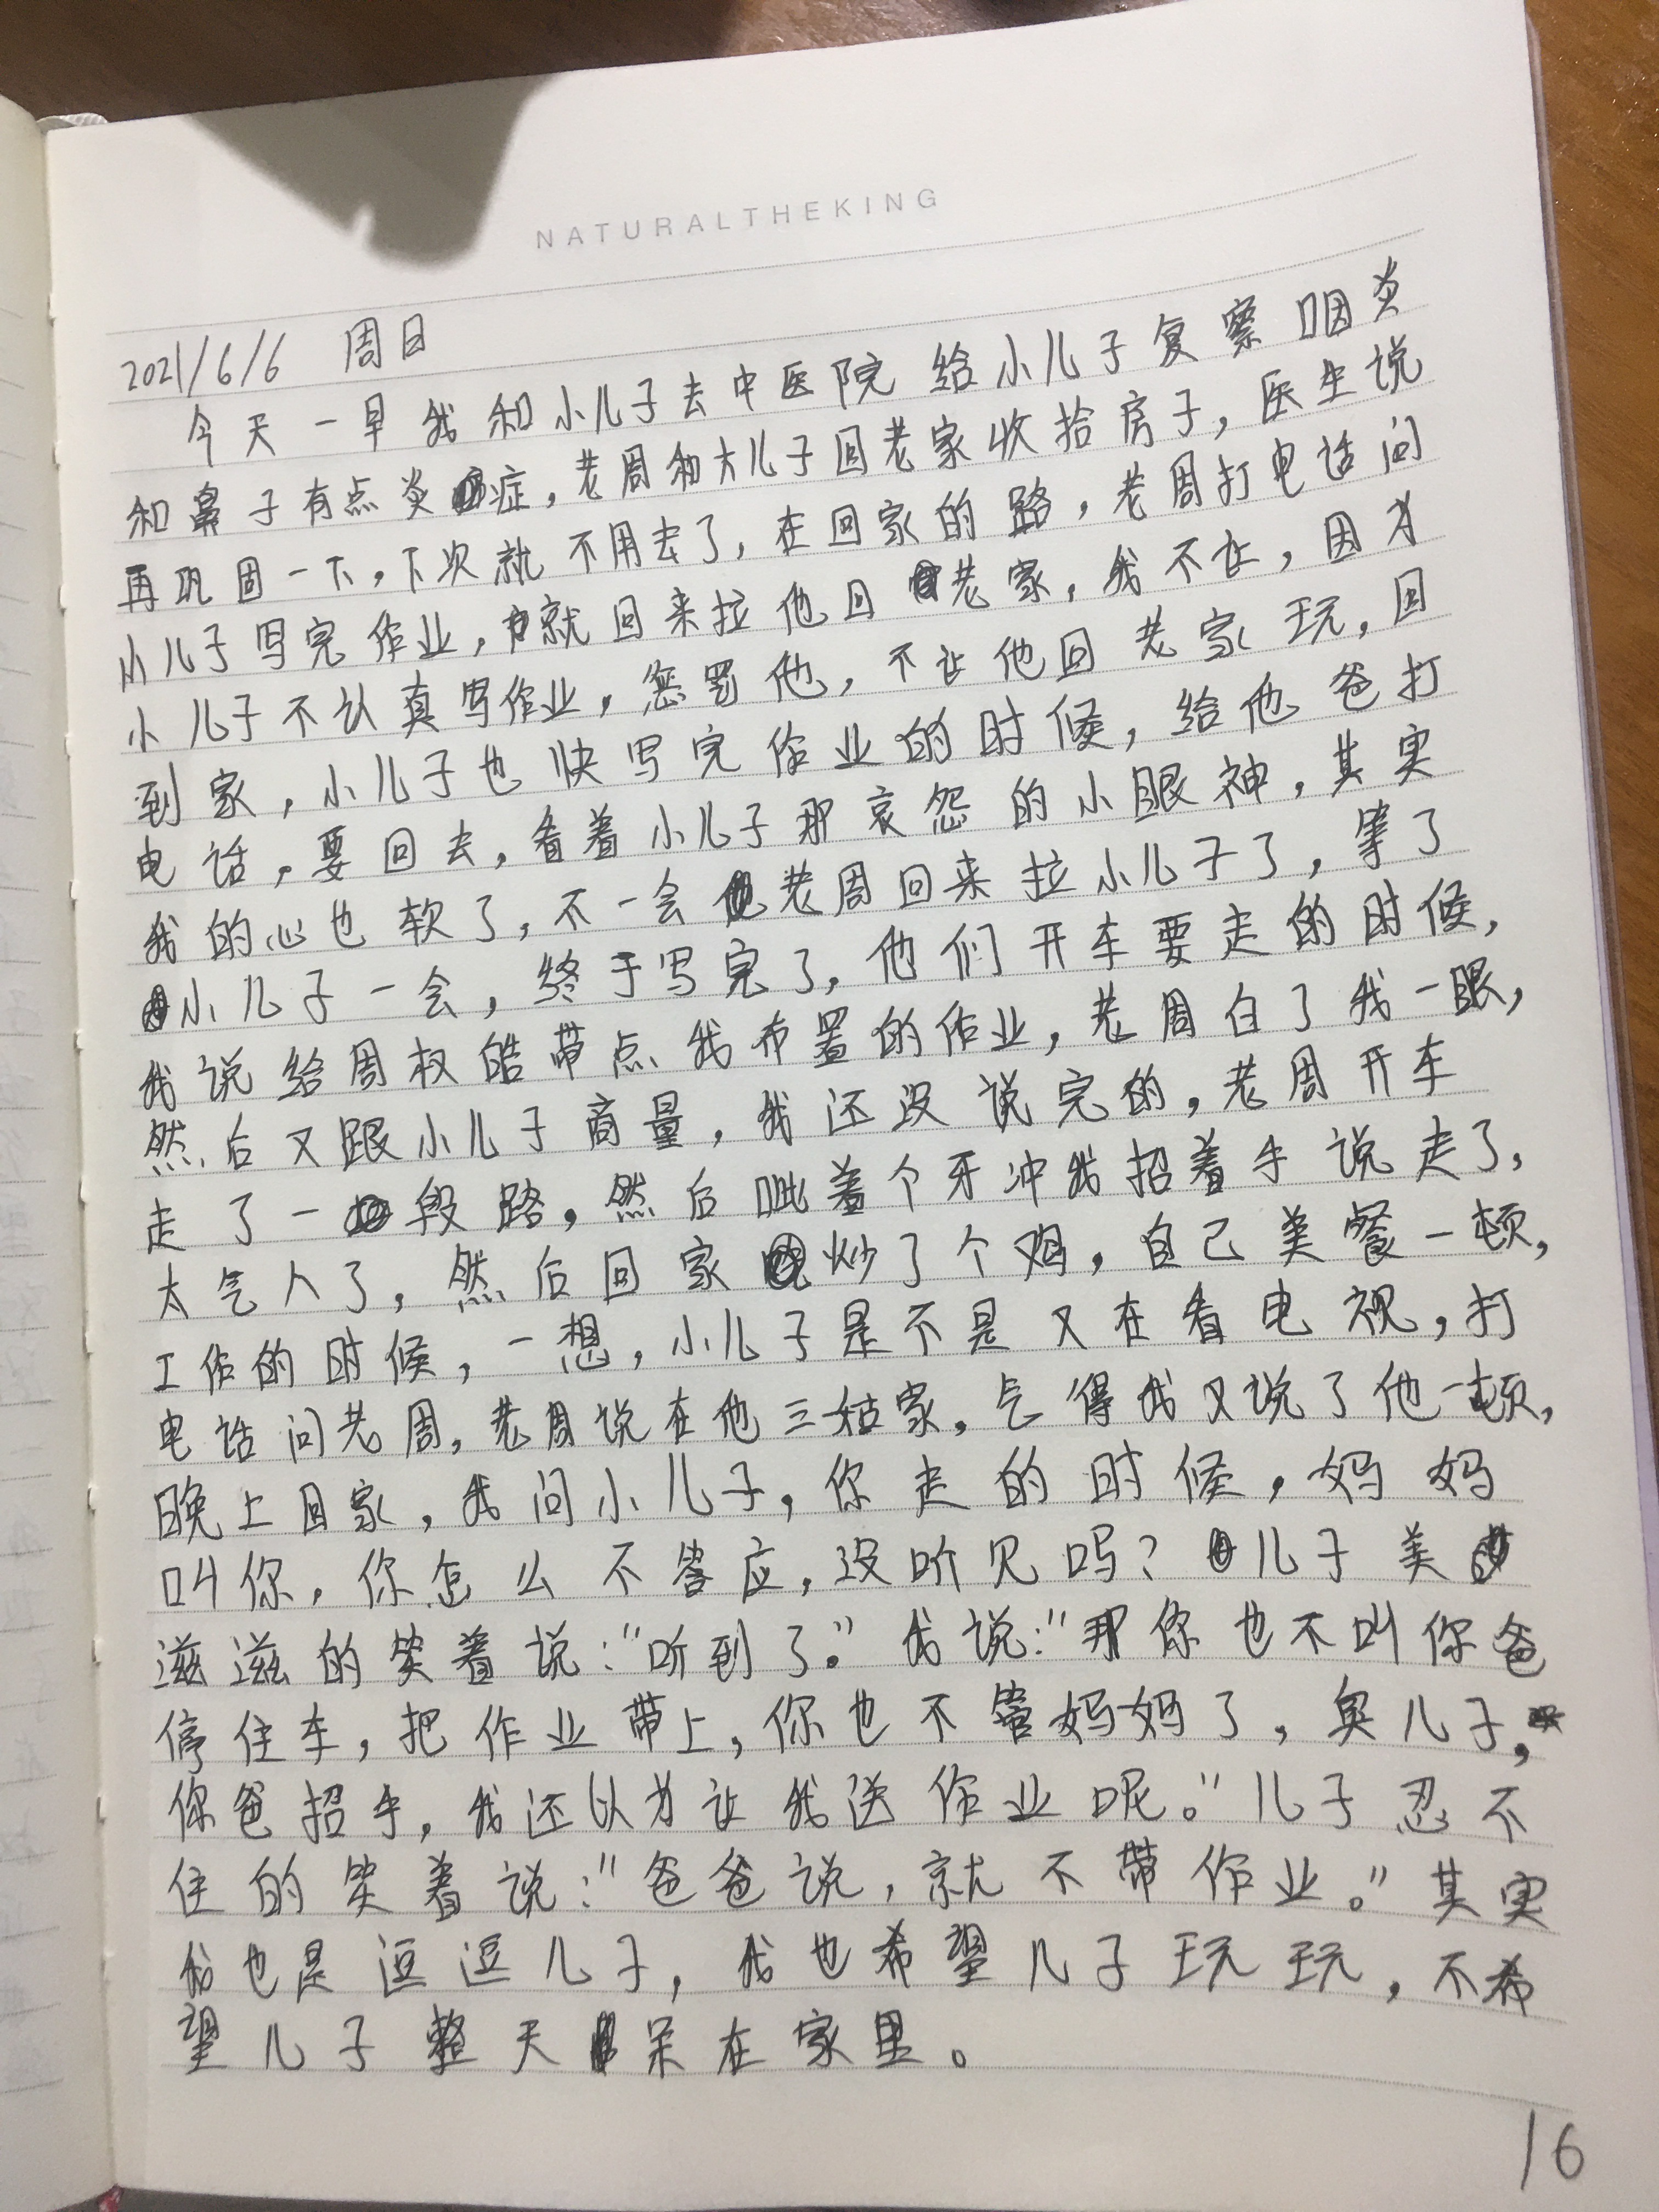 NATURALTHEKING
2021/6/6 周日
今天一早我和小儿子去中医院给小儿子复察咽炎
和鼻子有点炎症，老周和大儿子回老家收拾房子，医生说
再巩固一下，下次就不用去了，在回家的路，老周打电话问
小儿子写完作业，就回来拉他回老家，我不让，因为
小儿子不认真写作业，惩罚他，不让他回老家玩，回
到家，小儿子也快写完作业的时候，给他爸打
电话，要回去，看着小儿子那哀怨的小眼神，其实
我的心也软了，不一会老周回来拉小儿子了，等了
小儿子一会，终于写完了，他们开车要走的时候，
我说给周权皓带点我布置的作业，老周白了我一眼，
然后又跟小儿子商量，我还没说完的，老周开车
走了一段路，然后呲着个牙冲我招着手说走了，
太气人了，然后回家炒了个鸡，自己美餐一顿，
工作的时候，一想，小儿子是不是又在看电视，打
电话问老周，老周说在他三姑家，气得我又说了他一顿，
晚上回家，我问小儿子，你走的时候，妈妈
叫你，你怎么不答应，没听见吗？儿子美
滋滋的笑着说：“听到了。”我说：“那你也不叫你爸
停住车，把作业带上，你也不管妈妈了，臭儿子，
你爸招手，我还以为让我送作业呢。”儿子忍不
住的笑着说：“爸爸说，就不带作业。”其实
我也是逗逗儿子，我也希望儿子玩玩，不希
望儿子整天呆在家里。
16